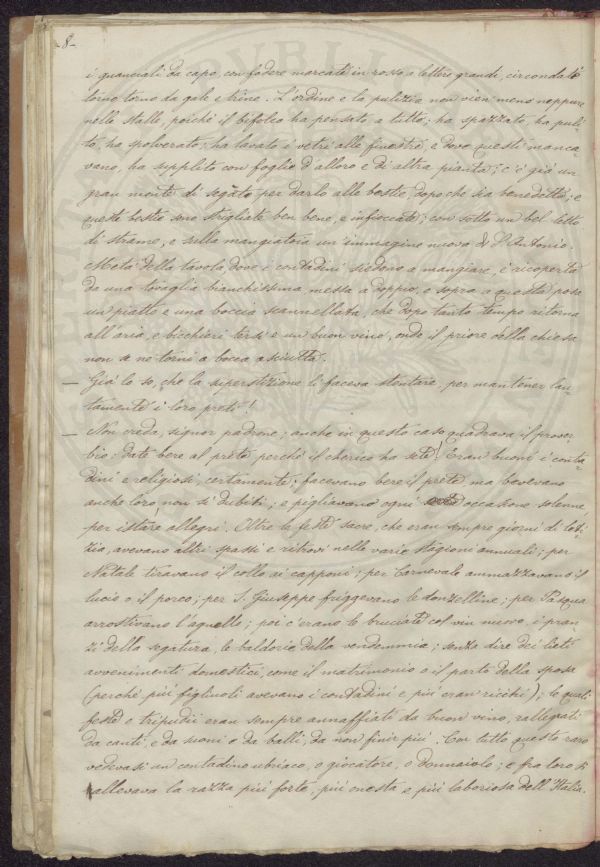 -8-
i guanciali da capo, con federe marcate in rosso a lettere grandi, circondate
torno torno da gale e trine. L'ordine e la pulizia non vien meno neppure
nelle stalle, poiché il bifolco ha pensato a tutto; ha spazzato, ha puli-
to, ha spolverato; ha lavato i vetri alle finestre, e dove questi manca-
vano, ha supplito con foglie d'alloro e di altra pianta; c'è già un
gran monte di segato per darlo alle bestie, dopo che sia benedetto; e
queste bestie sono strigliate ben bene, e infioccate; con sotto un bel letto
di strame, e sulla mangiatoia un'immagine nuova di S. Antonio.
Metà della tavola, dove i contadini siedono a mangiare, è ricoperta
da una tovaglia bianchissima, messa a doppio, e sopra a questa posa
un piatto e una boccia scannellata, che dopo tanto tempo ritorna
all'aria, e bicchieri tersi e un buon vino, onde il priore della chiesa
non se ne torni a bocca asciutta.
— Già lo so, che la superstizione li faceva stentare, per mantener lau-
tamente i loro preti!
— Non creda, signor padrone; anche in questo caso quadrava il prover-
bio: date bere al prete, perché il cherico ha sete! Eran buoni i conta-
dini e religiosi, certamente; facevano bere il prete ma bevevano
anche loro, non si dubiti; e pigliavano ogni occasione solenne,
per istare allegri. Oltre le feste sacre, che eran sempre giorni di leti-
zia, avevano altri spassi e ritrovi nelle varie stagioni annuali; per
Natale tiravano il collo ai capponi; per Carnevale ammazzavano il
lucio o il porco; per S. Giuseppe friggevano le donzelline; per Pasqua
arrostivano l'agnello; poi c'erano le bruciate col vin nuovo, i pran-
zi della segatura, le baldorie della vendemmia; senza dire dei lieti
avvenimenti domestici, come il matrimonio o il parto della sposa
(perché più figliuoli avevano i contadini e più eran ricchi); le quali
feste e tripudii eran sempre annaffiati da buon vino, rallegrati
da canti, e da suoni e da balli, da non finir più. Con tutto questo raro
vedevasi un contadino ubriaco, o giocatore, o donnaiolo; e fra loro si
allevava la razza più forte, più onesta e più laboriosa dell'Italia.